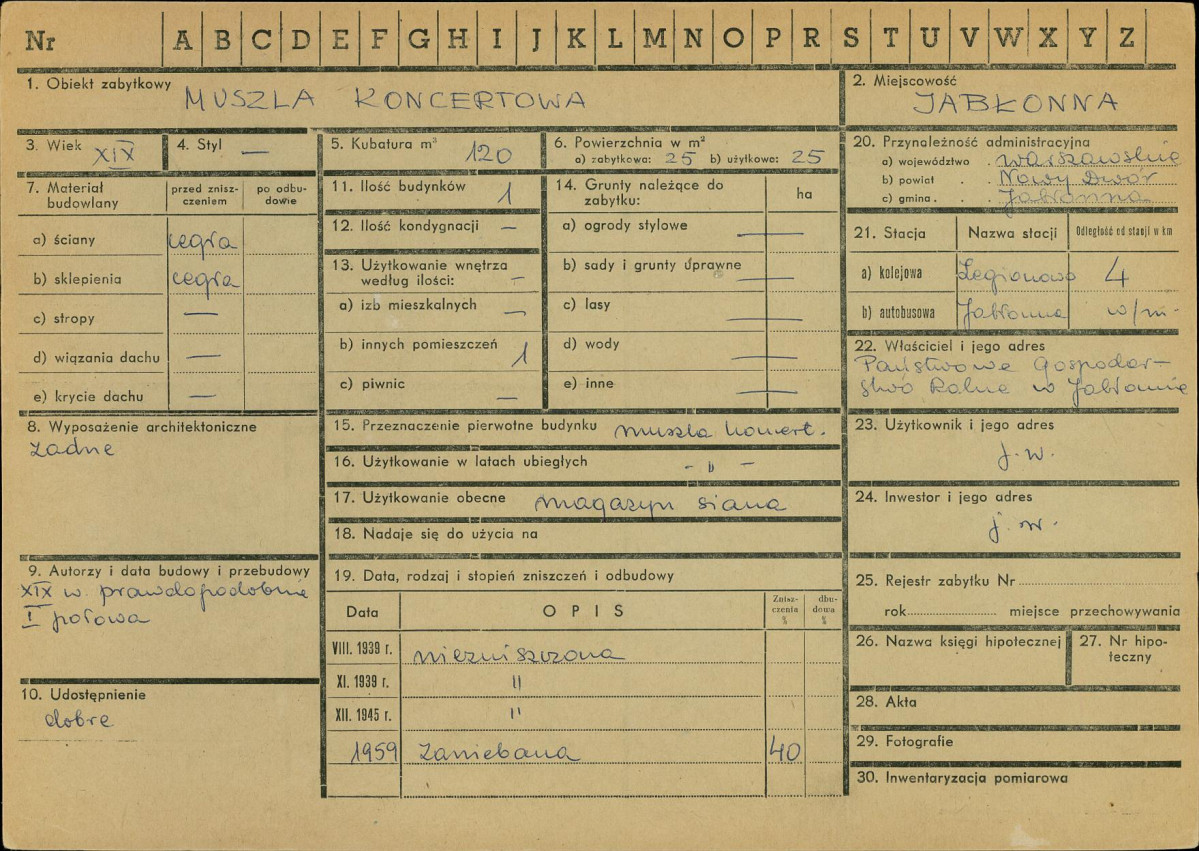 Nr A B C D E F G H I J K L M N O P R S T U V W X Y Z
1. Obiekt zabytkowy MUSZLA KONCERTOWA
2. Miejscowość JABŁONNA
3. Wiek XIX
4. Styl —
5. Kubatura m³ 120
6. Powierzchnia w m²
a) zabytkowa: 25 b) użytkowa: 25
7. Materiał budowlany
przed zniszczeniem
po odbudowie
a) ściany cegła
b) sklepienia cegła
c) stropy —
d) wiązania dachu —
e) krycie dachu —
8. Wyposażenie architektoniczne
żadne
9. Autorzy i data budowy i przebudowy
XIX w. prawdopodobnie
I połowa
10. Udostępnienie
dobre
11. Ilość budynków 1
12. Ilość kondygnacji —
13. Użytkowanie wnętrza
według ilości: —
a) izb mieszkalnych —
b) innych pomieszczeń 1
c) piwnic —
14. Grunty należące do
zabytku:
ha
a) ogrody stylowe —
b) sady i grunty uprawne —
c) lasy —
d) wody —
e) inne —
15. Przeznaczenie pierwotne budynku muszla koncert.
16. Użytkowanie w latach ubiegłych - " -
17. Użytkowanie obecne magazyn siana
18. Nadaje się do użycia na
19. Data, rodzaj i stopień zniszczeń i odbudowy
Data OPIS Zniszczenia % dbudowa %
VIII. 1939 r. niezniszczona
XI. 1939 r. "
XII. 1945 r. "
1959 zaniebana 40
20. Przynależność administracyjna
a) województwo . warszawskie
b) powiat . . Nowy Dwór
c) gmina . . Jabłonna
21. Stacja Nazwa stacji Odległość od stacji w km
a) kolejowa Legionowo 4
b) autobusowa Jabłonna w/m-
22. Właściciel i jego adres
Państwowe Gospodar-
stwo Rolne w Jabłonnie
23. Użytkownik i jego adres
j.w.
24. Inwestor i jego adres
j.w.
25. Rejestr zabytku Nr
rok miejsce przechowywania
26. Nazwa księgi hipotecznej
27. Nr hipo-
teczny
28. Akta
29. Fotografie
30. Inwentaryzacja pomiarowa